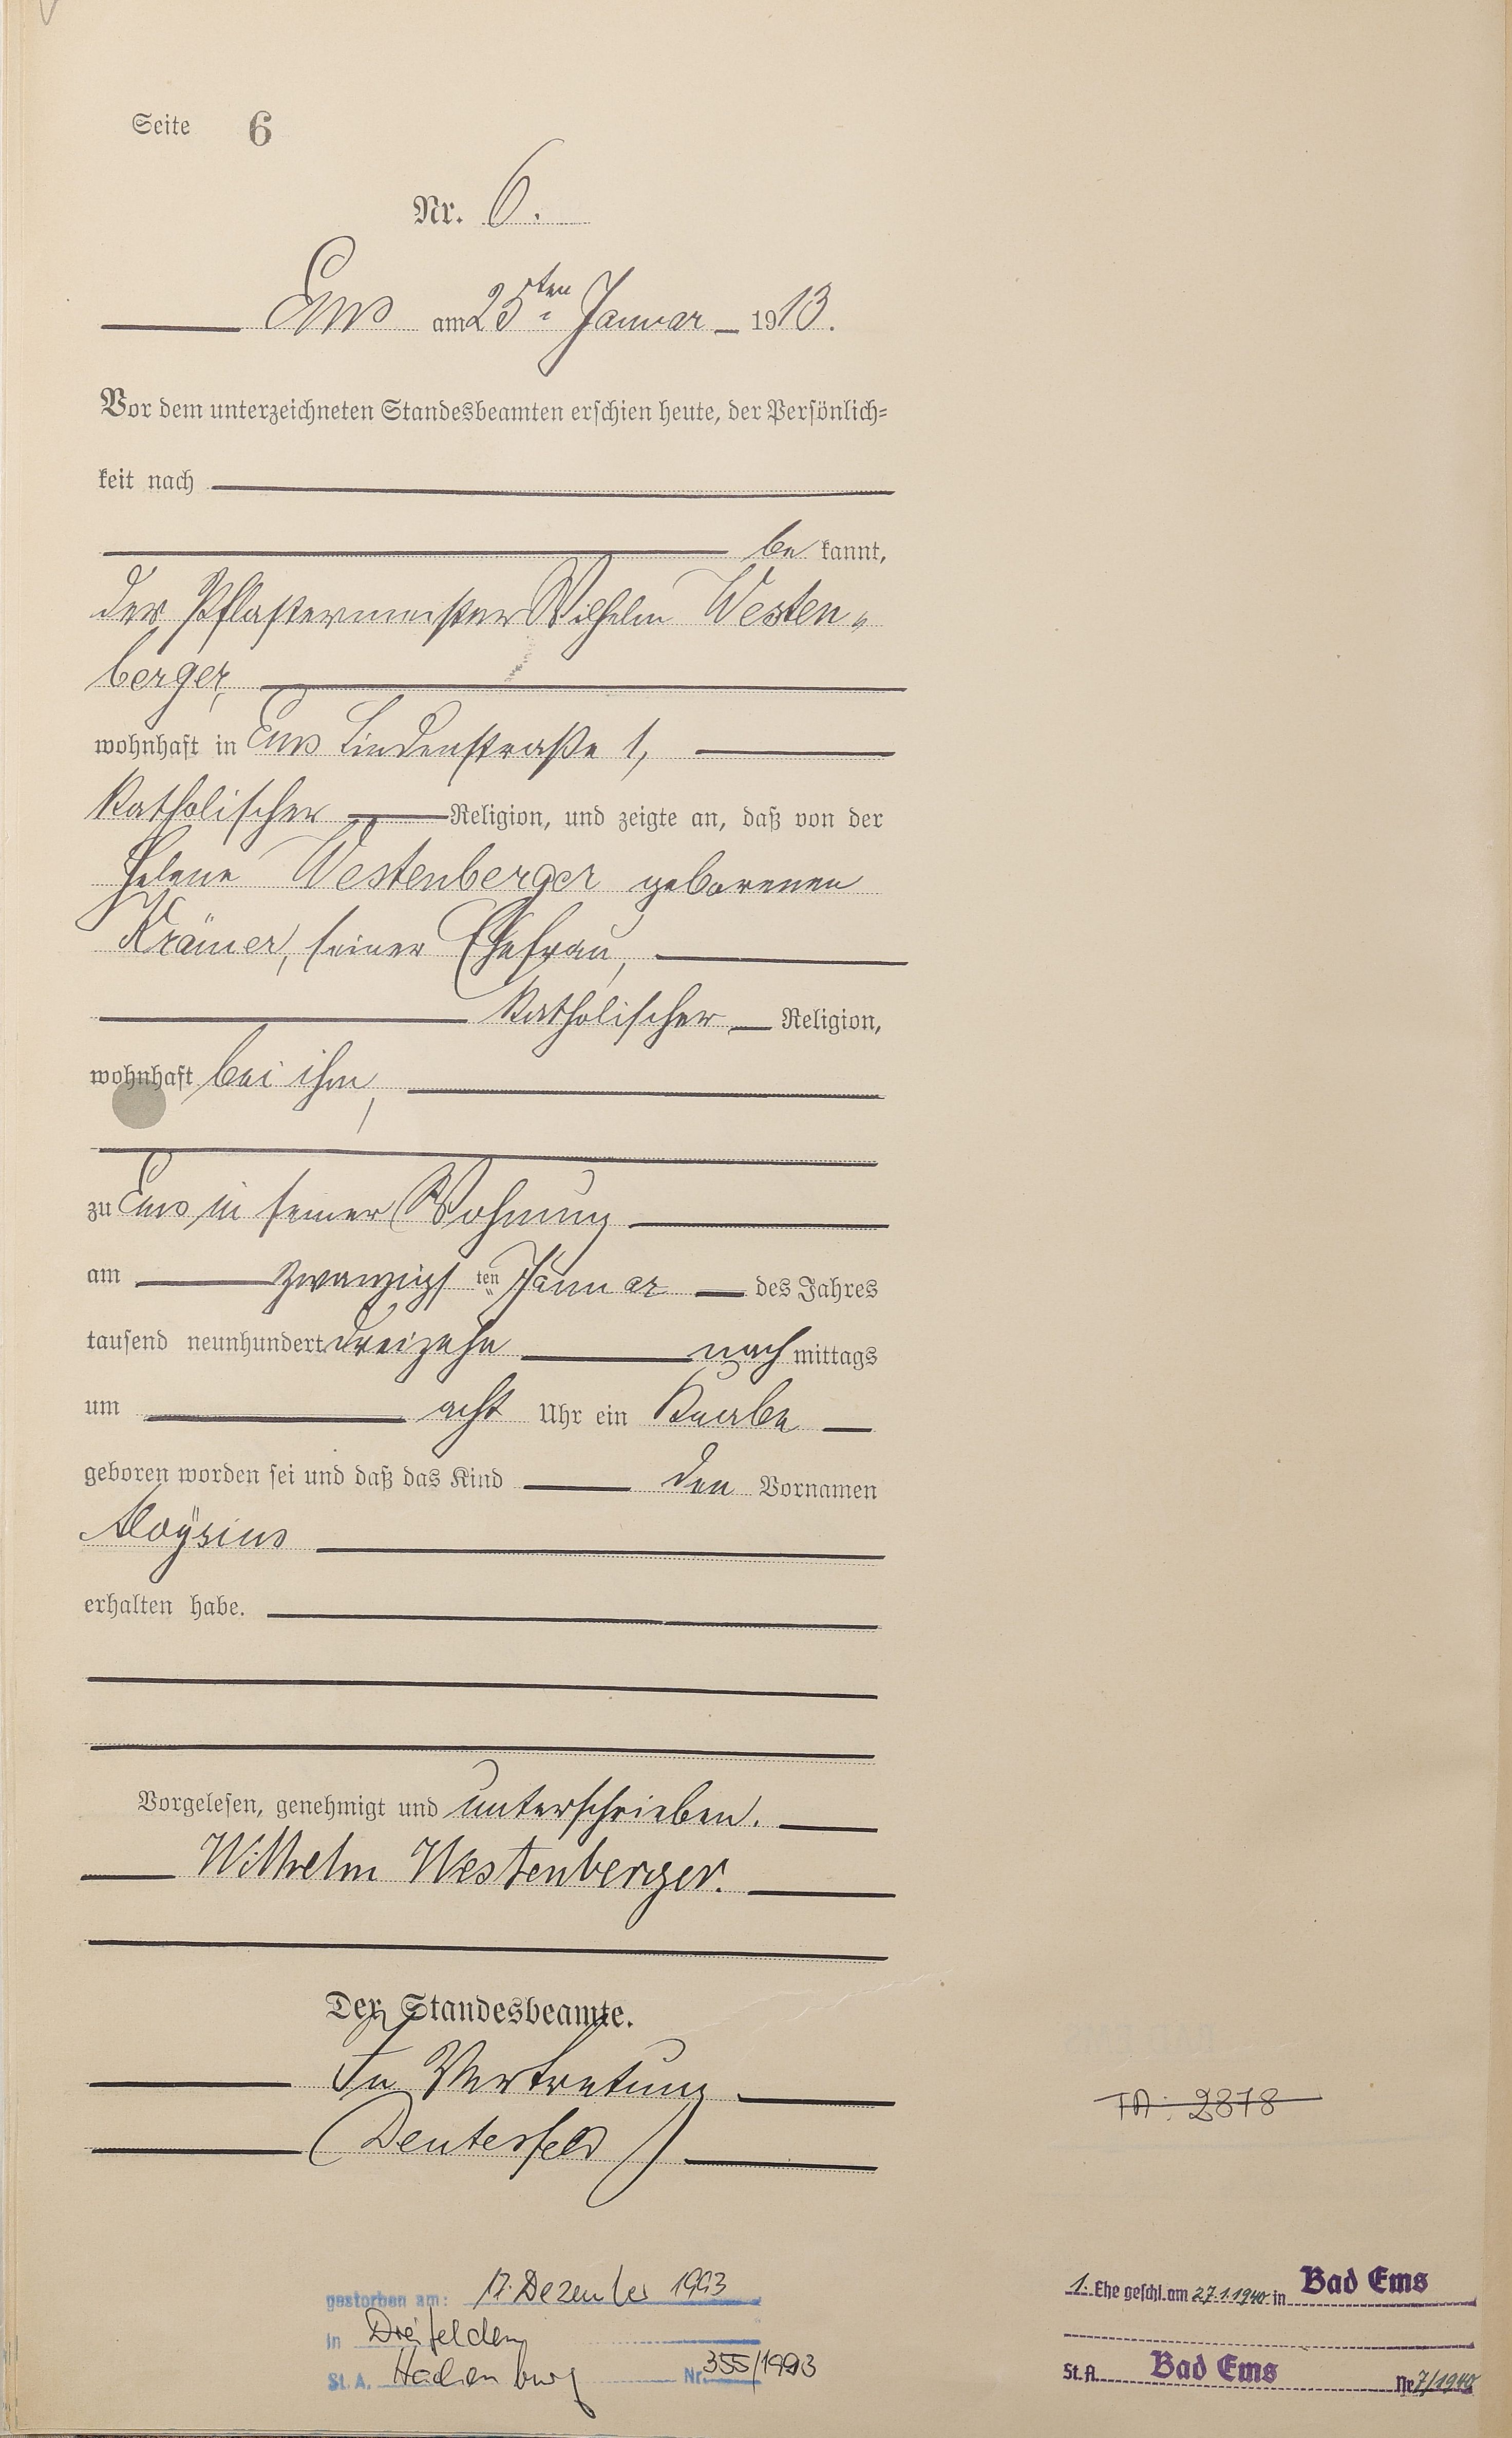 Seite 6
Nr. 6.
Ems am 25ten Januar 1913.
Vor dem unterzeichneten Standesbeamten erschien heute, der Persönlich=
keit nach
be kannt,
der Pflastermeister Wilhelm Westen-
berger,
wohnhaft in Ems Lindenstraße 1,
katholischer Religion, und zeigte an, daß von der
Helene Westenberger geborenen
Krämer, seiner Ehefrau,
katholischer Religion,
wohnhaft bei ihm,
zu Ems in seiner Wohnung
am zwanzigsten Januar des Jahres
tausend neunhundert dreizehn nachmittags
um acht Uhr ein Knabe
geboren worden sei und daß das Kind den Vornamen
Aloÿsius
erhalten habe.
Vorgelesen, genehmigt und unterschrieben.
Wilhelm Westenberger.
Der Standesbeamte.
In Vertretung
(Deutesfeld)
TA: 2878
gestorben am: 17. Dezember 1993
in Dreifelden
St. A. Hachenburg Nr. 355/1993
1. Ehe geschl. am 27.1.1940 in Bad Ems
St. A. Bad Ems Nr 7/1940